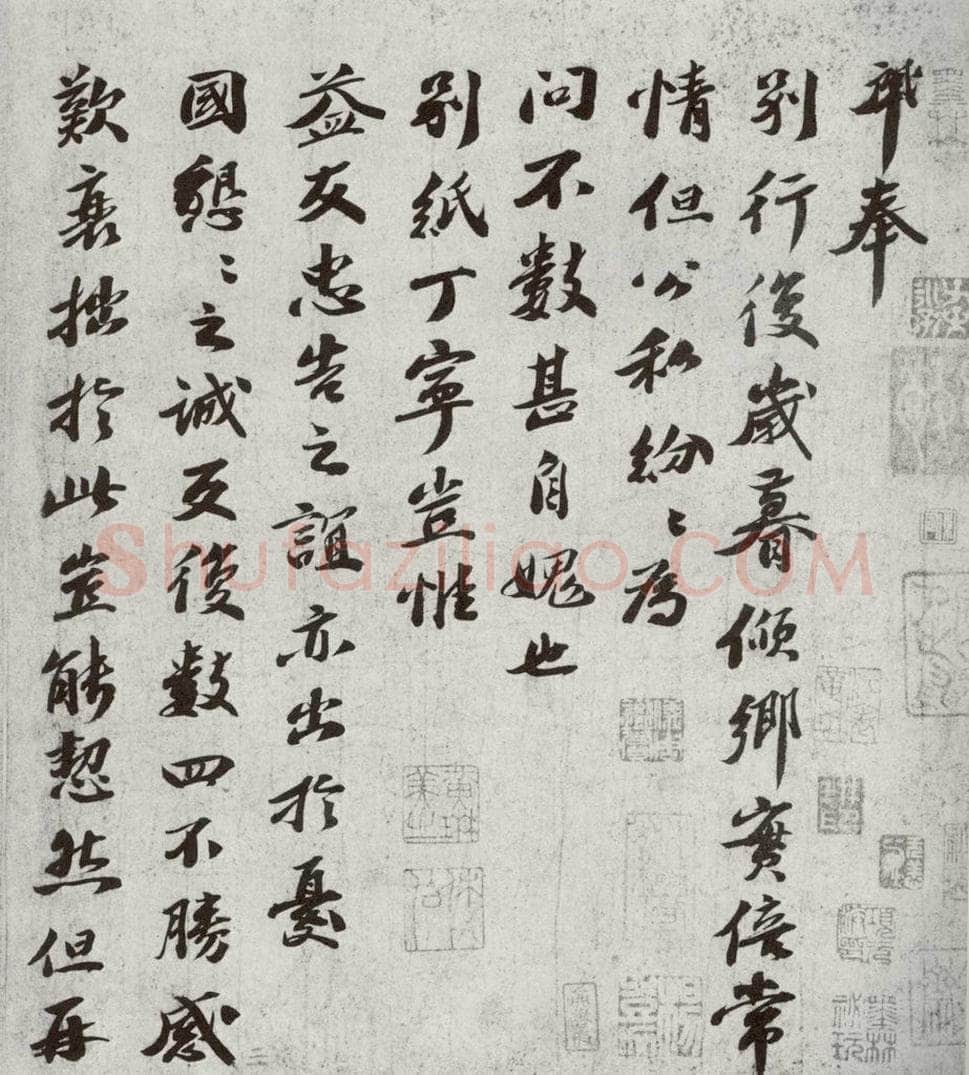 奉
别行後歲暮傾鄉實倍常
情但公私紛〻為
問不數甚自愧也
别紙丁寧豈惟
益友忠告之誼亦出於憂
國懇〻之誠反復數四不勝感
歎衰拙於此豈能恝然但再
黃琳美之
休伯
Shufaziliao.COM